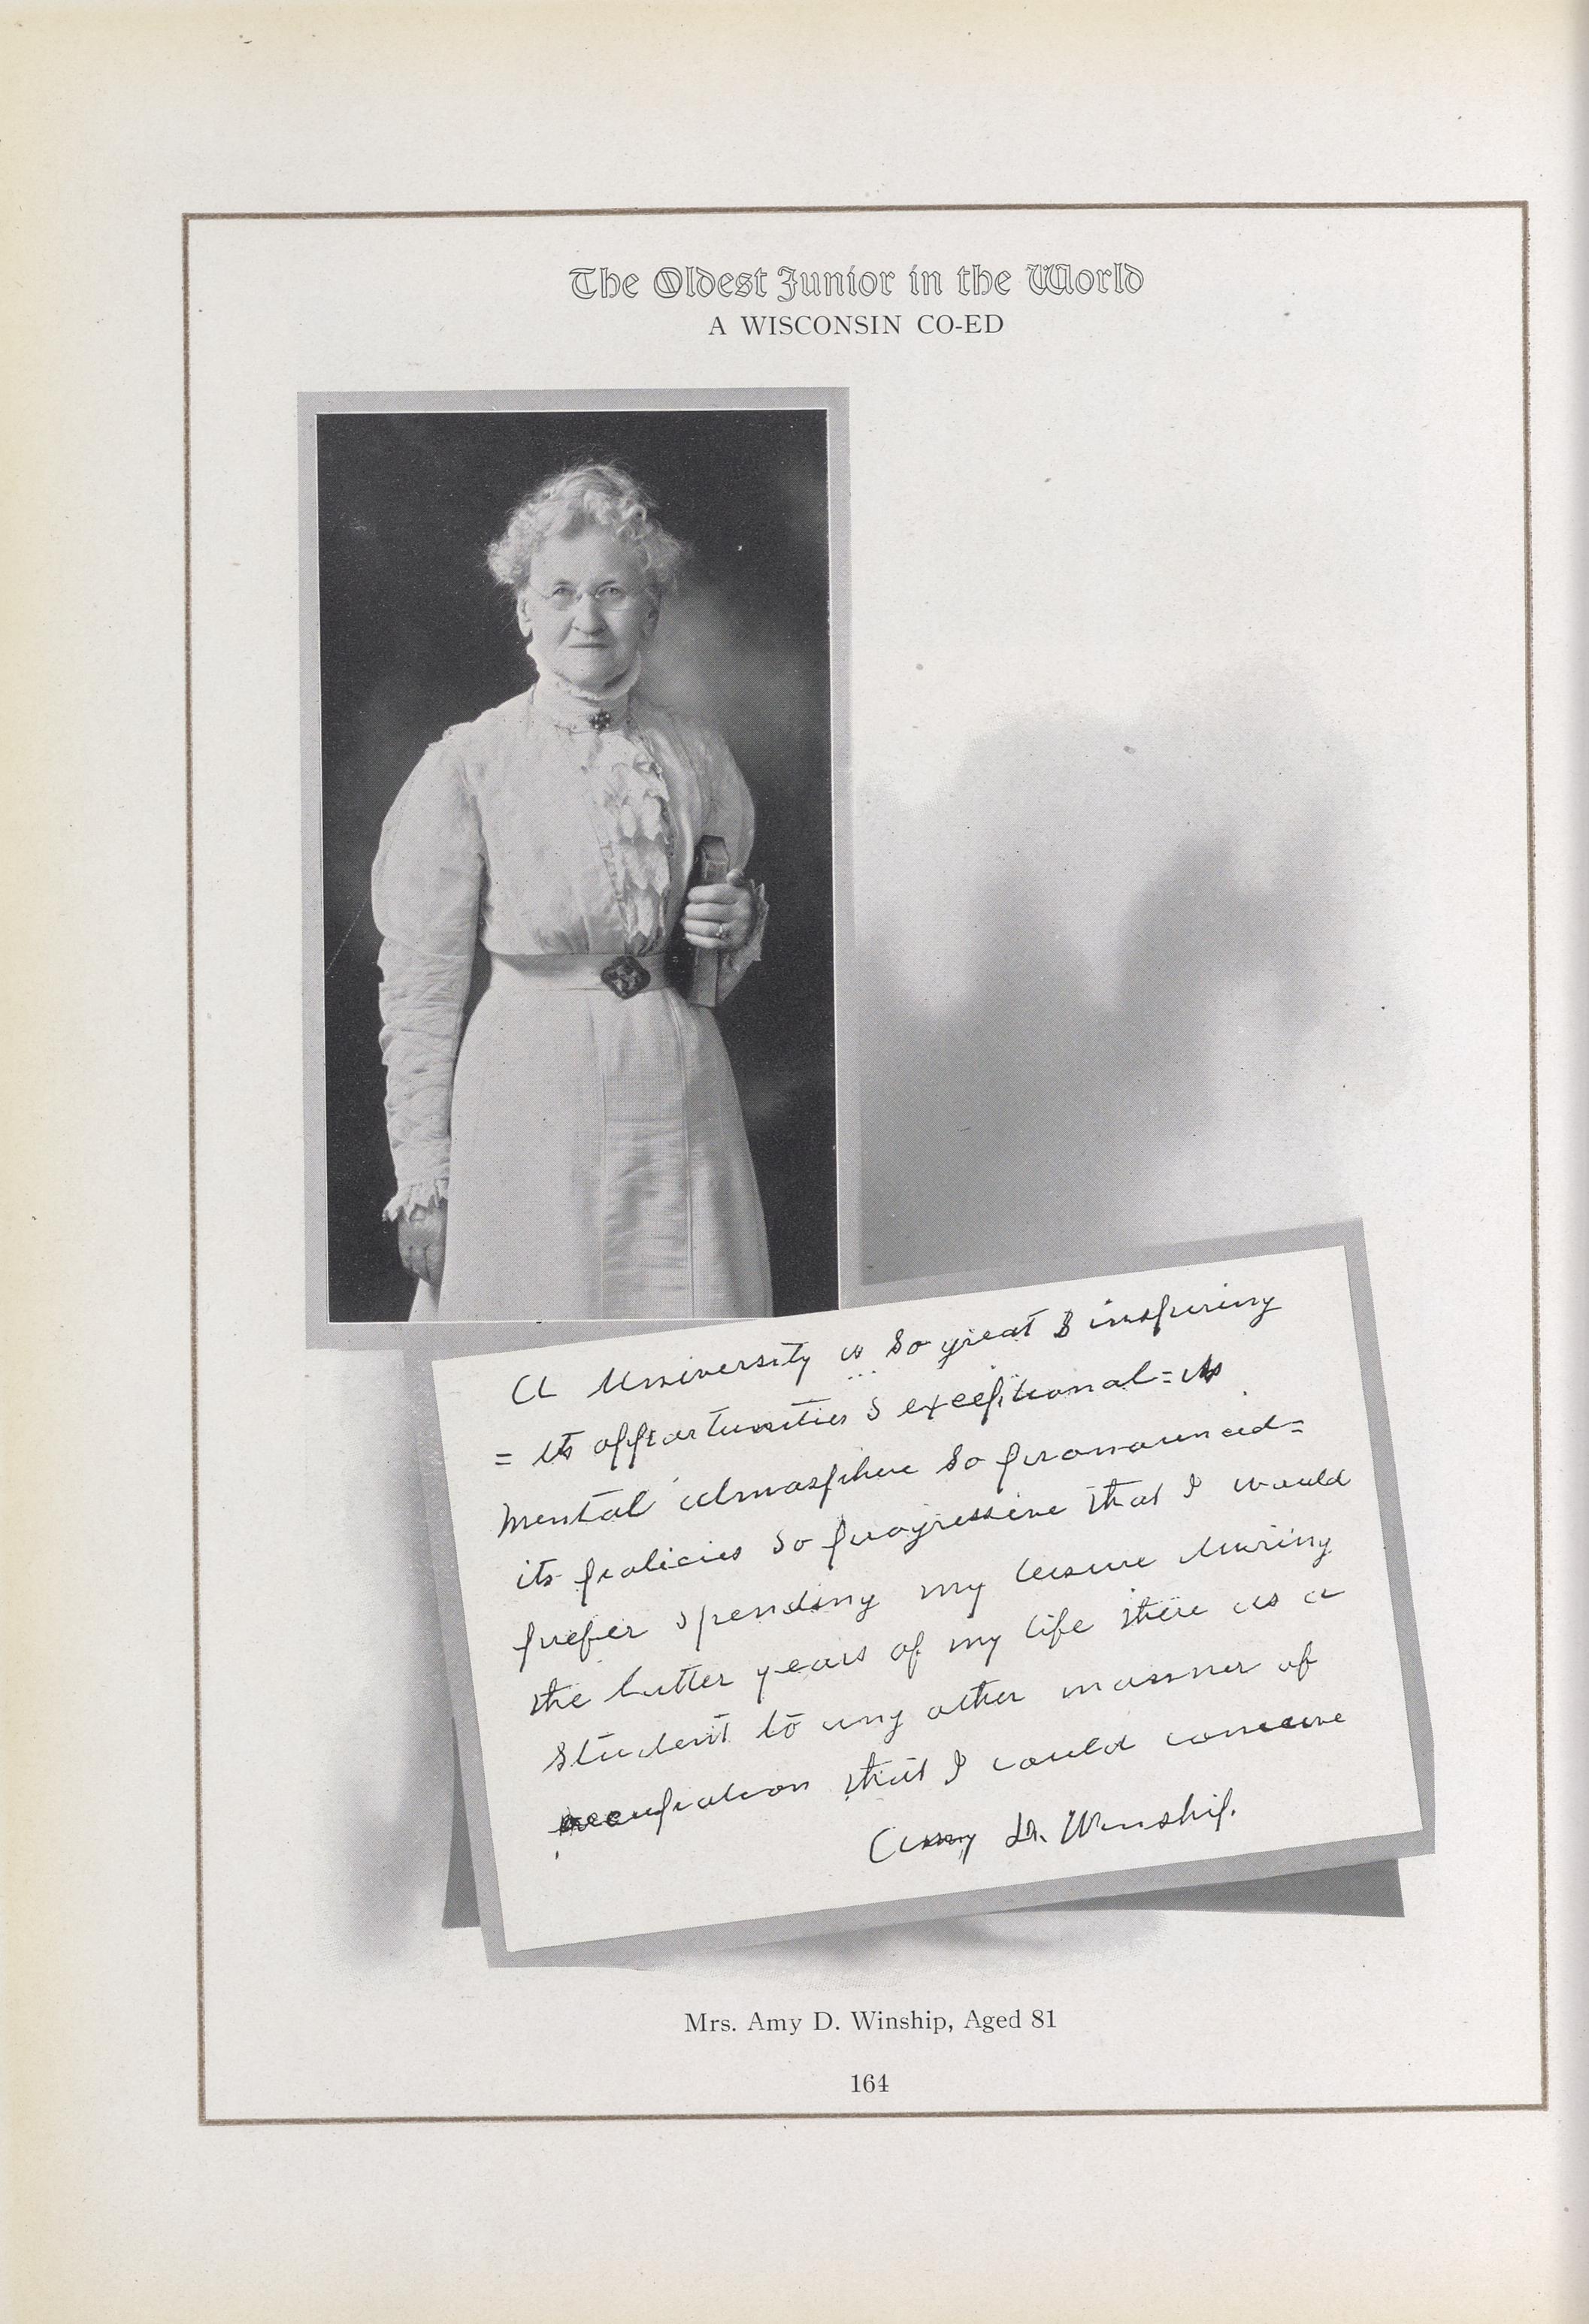 The Oldest Junior in the World
A WISCONSIN CO-ED
A University is so great & inspiring
= its opportunities so exceptional = its
mental atmosphere so pronounced =
its policies so progressive that I would
prefer spending my leisure during
the latter years of my life there as a
student to any other manner of
occupation that I could conceive
Amy D. Winship.
Mrs. Amy D. Winship, Aged 81
164